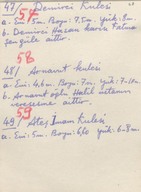 47/ Demirci Kulesi
57
a. Eni: 5 m. Boyu: 7,5 m. yük: 8 m.
b. Demirci Hasan karısı Fatma
aittir.
58
48/ Arnavut kulesi
a. Eni: 4,6 m. Boyu: 7 m. yük: 7-10 m.
b. Arnavut oğlu Halil
veresesine aittir.
59
49/ Ateş İmam Kulesi
a. Eni: 5 m. Boyu: 6,60 yük: 6-8 m.